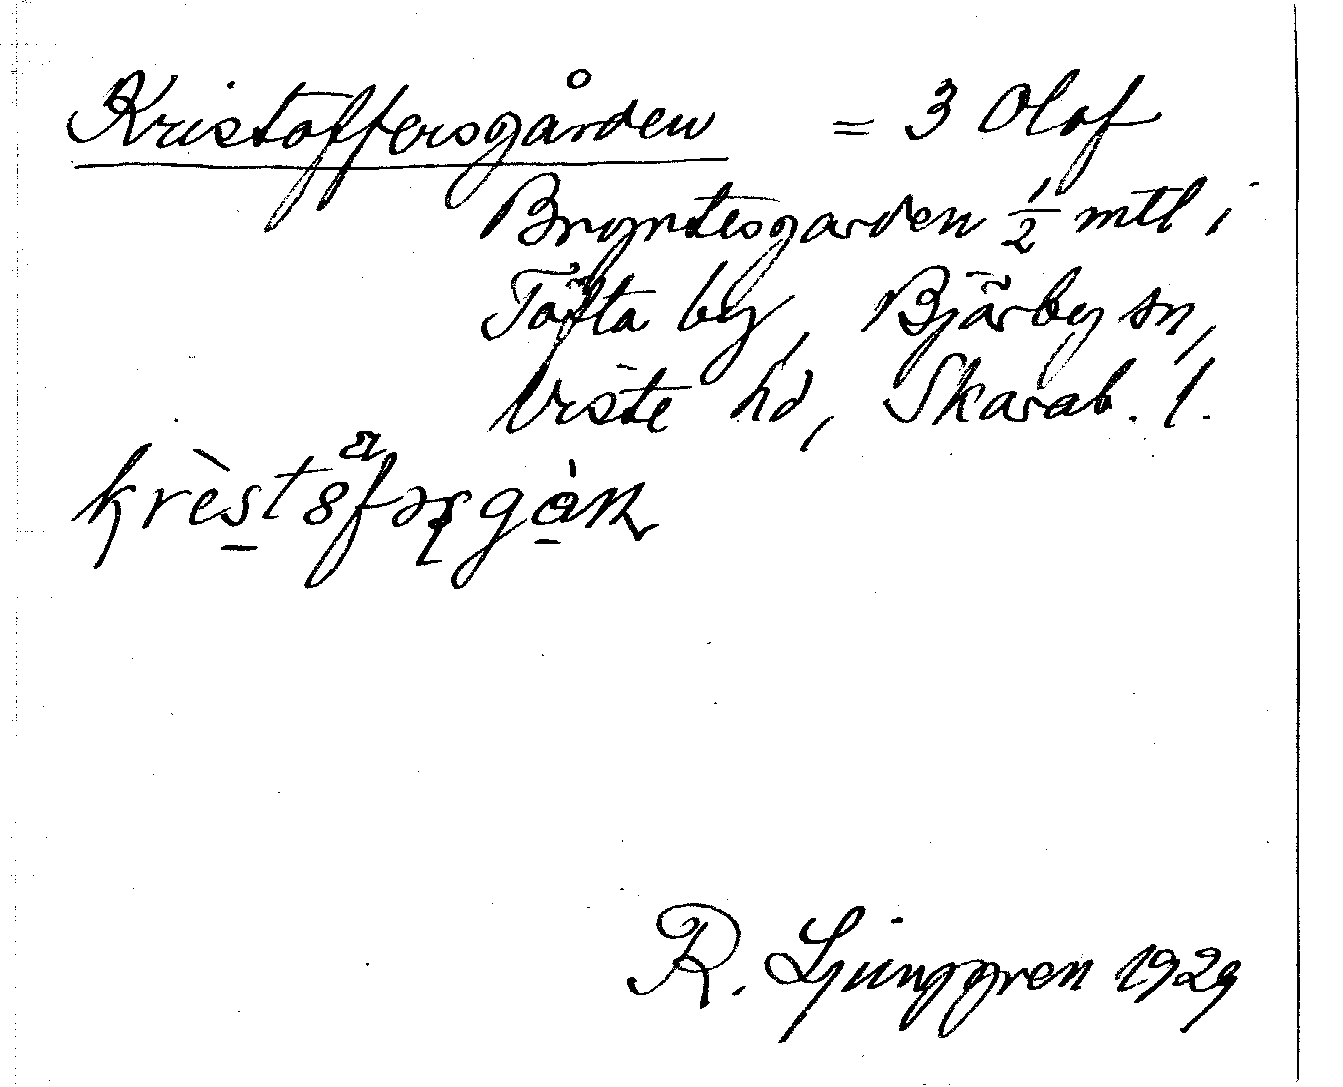 Kristoffersgården = 3 Olof
Bryntesgarden 1/2 mtl i
Töfta by, Bjärby sn,
Viste hd, Skarab. l.
R. Ljunggren 1929